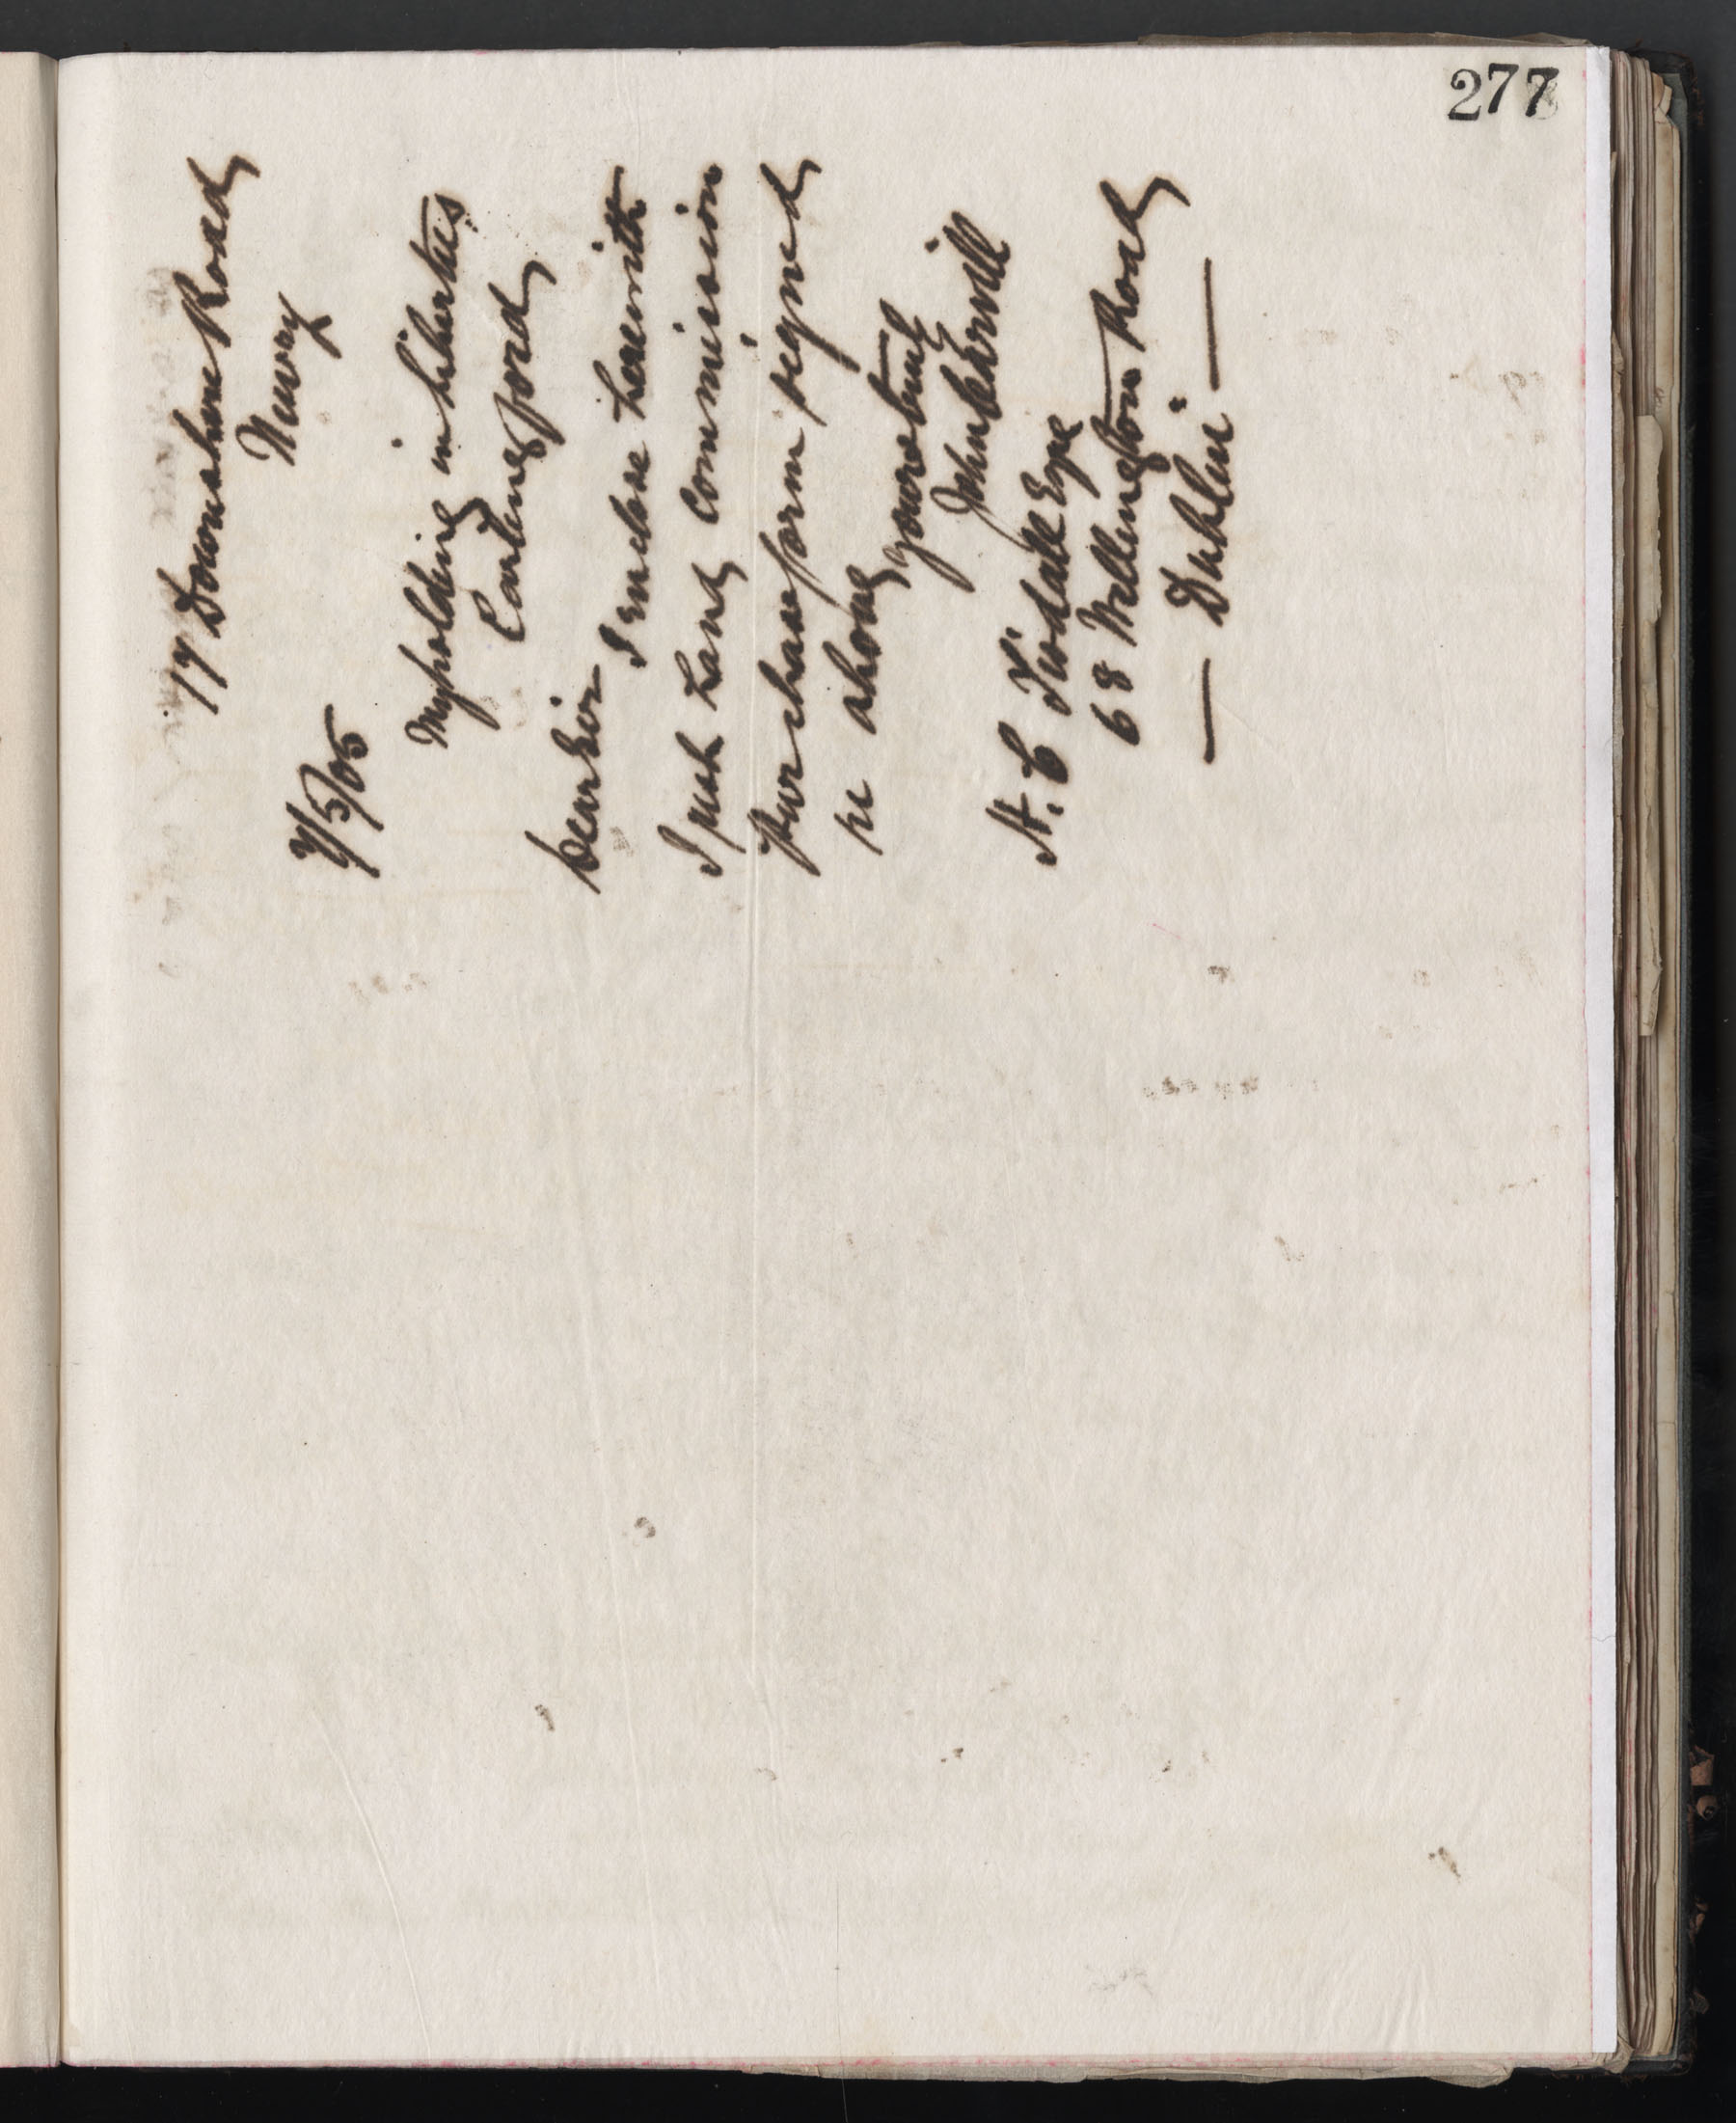 17 Downshire Road,
Newry
7/5/05
My holding in Liberties
Carlingford,
Dear Sir
I enclose herewith
Irish Land Commission
Purchase form signed
re above,
yours truly
John Carvill
H. C Tisdall Esqe
68 Wellington Road,
— Dublin —
277